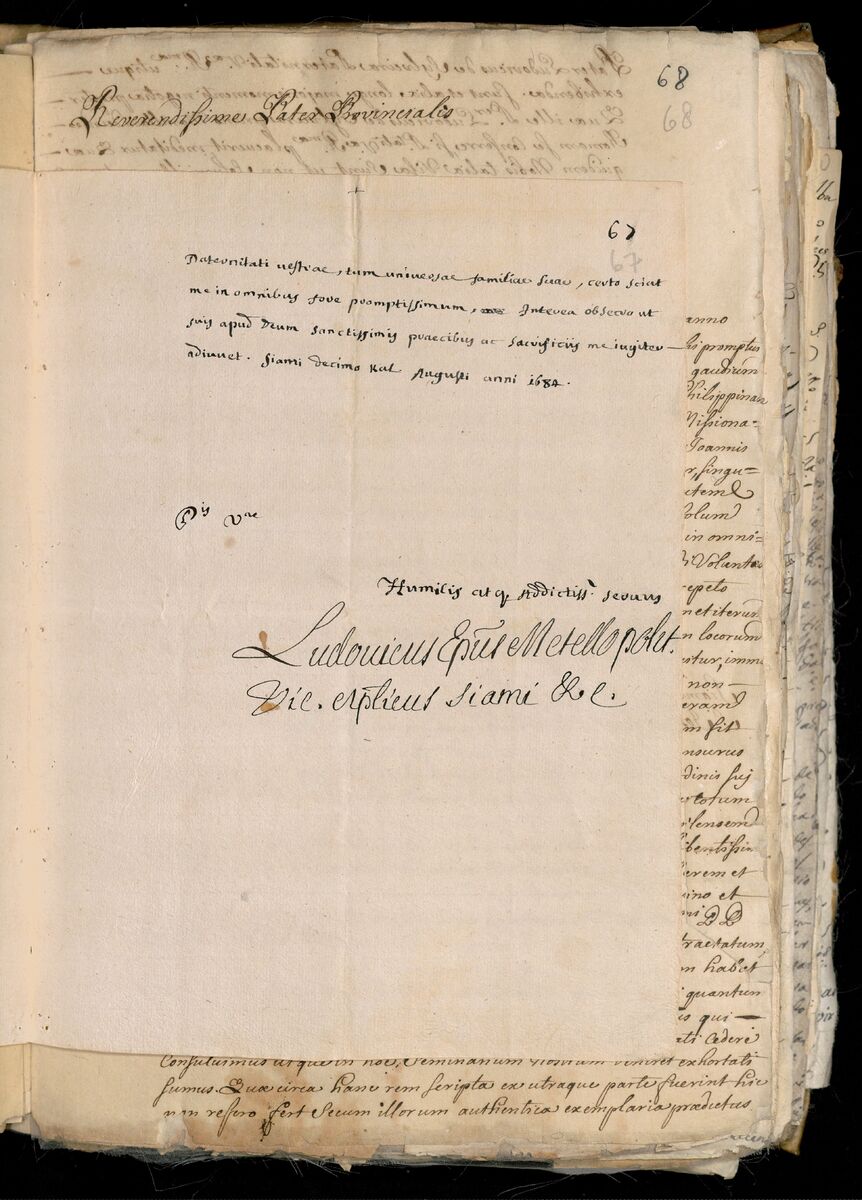 68
68
Reverendissime Pater Provincialis
67
67
Paternitati vestrae, tum universae familiae suae, certo sciat
me in omnibus fore promptissimum, Interea obsecro ut
suis apud Deum sanctissimis praecibus ac sacrificiis me iugiter
adiuvet. Siami decimo Kal Augusti anni 1684.
Pis Vae
Humilis atq Addictiss. servus
Ludovicus Epus Metellopolit.
Vic. Aplicus Siami &c.
anno
promptus
gaudium
Philippinar
Missiona=
Joannis
r, singu=
item
olum
in omni=
Volunta
repeto
metiterum
n locorum
stur, imm
non
eram
m sit
nsurus
dinis suj
totum
ilensem
ibentissim
erem et
ino et
PP
tractatum
m habet
quantum
is qui
ati cedere
Consuluimus utque in hoc Seminarium nostrum veniret exhortati
sumus. Quæ circa hanc rem scripta ex utraque parte fuerint hic
non refero fert Secum illorum authentica exemplaria prædictus